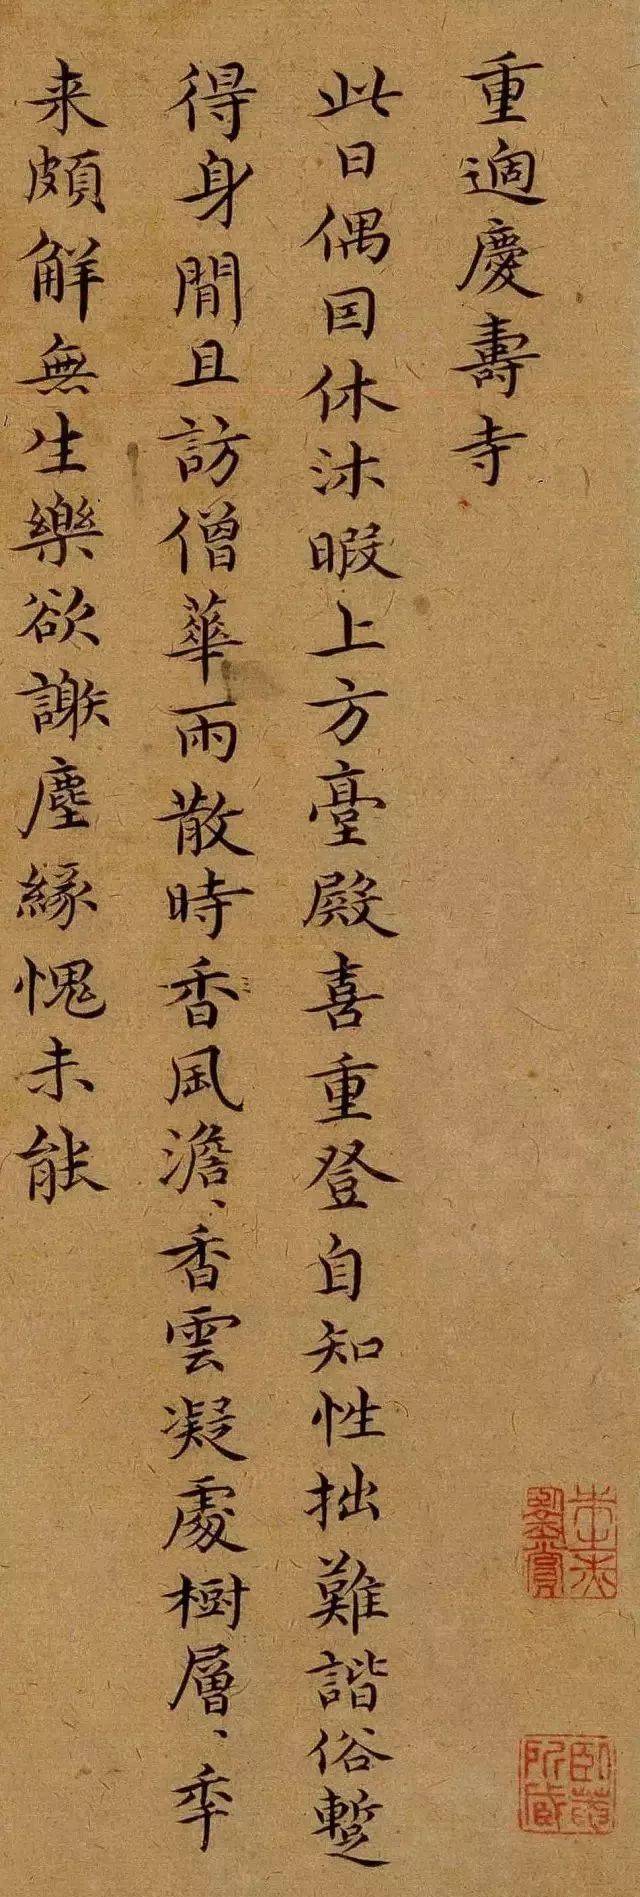 重過慶壽寺
此日偶囙休沐暇上方臺殿喜重登自知性拙難諧俗蹔
得身閒且訪僧華雨散時香風澹、香雲凝處樹層、年
来頗解無生樂欲謝塵緣愧未能
朱之赤鑒賞
卧菴所藏